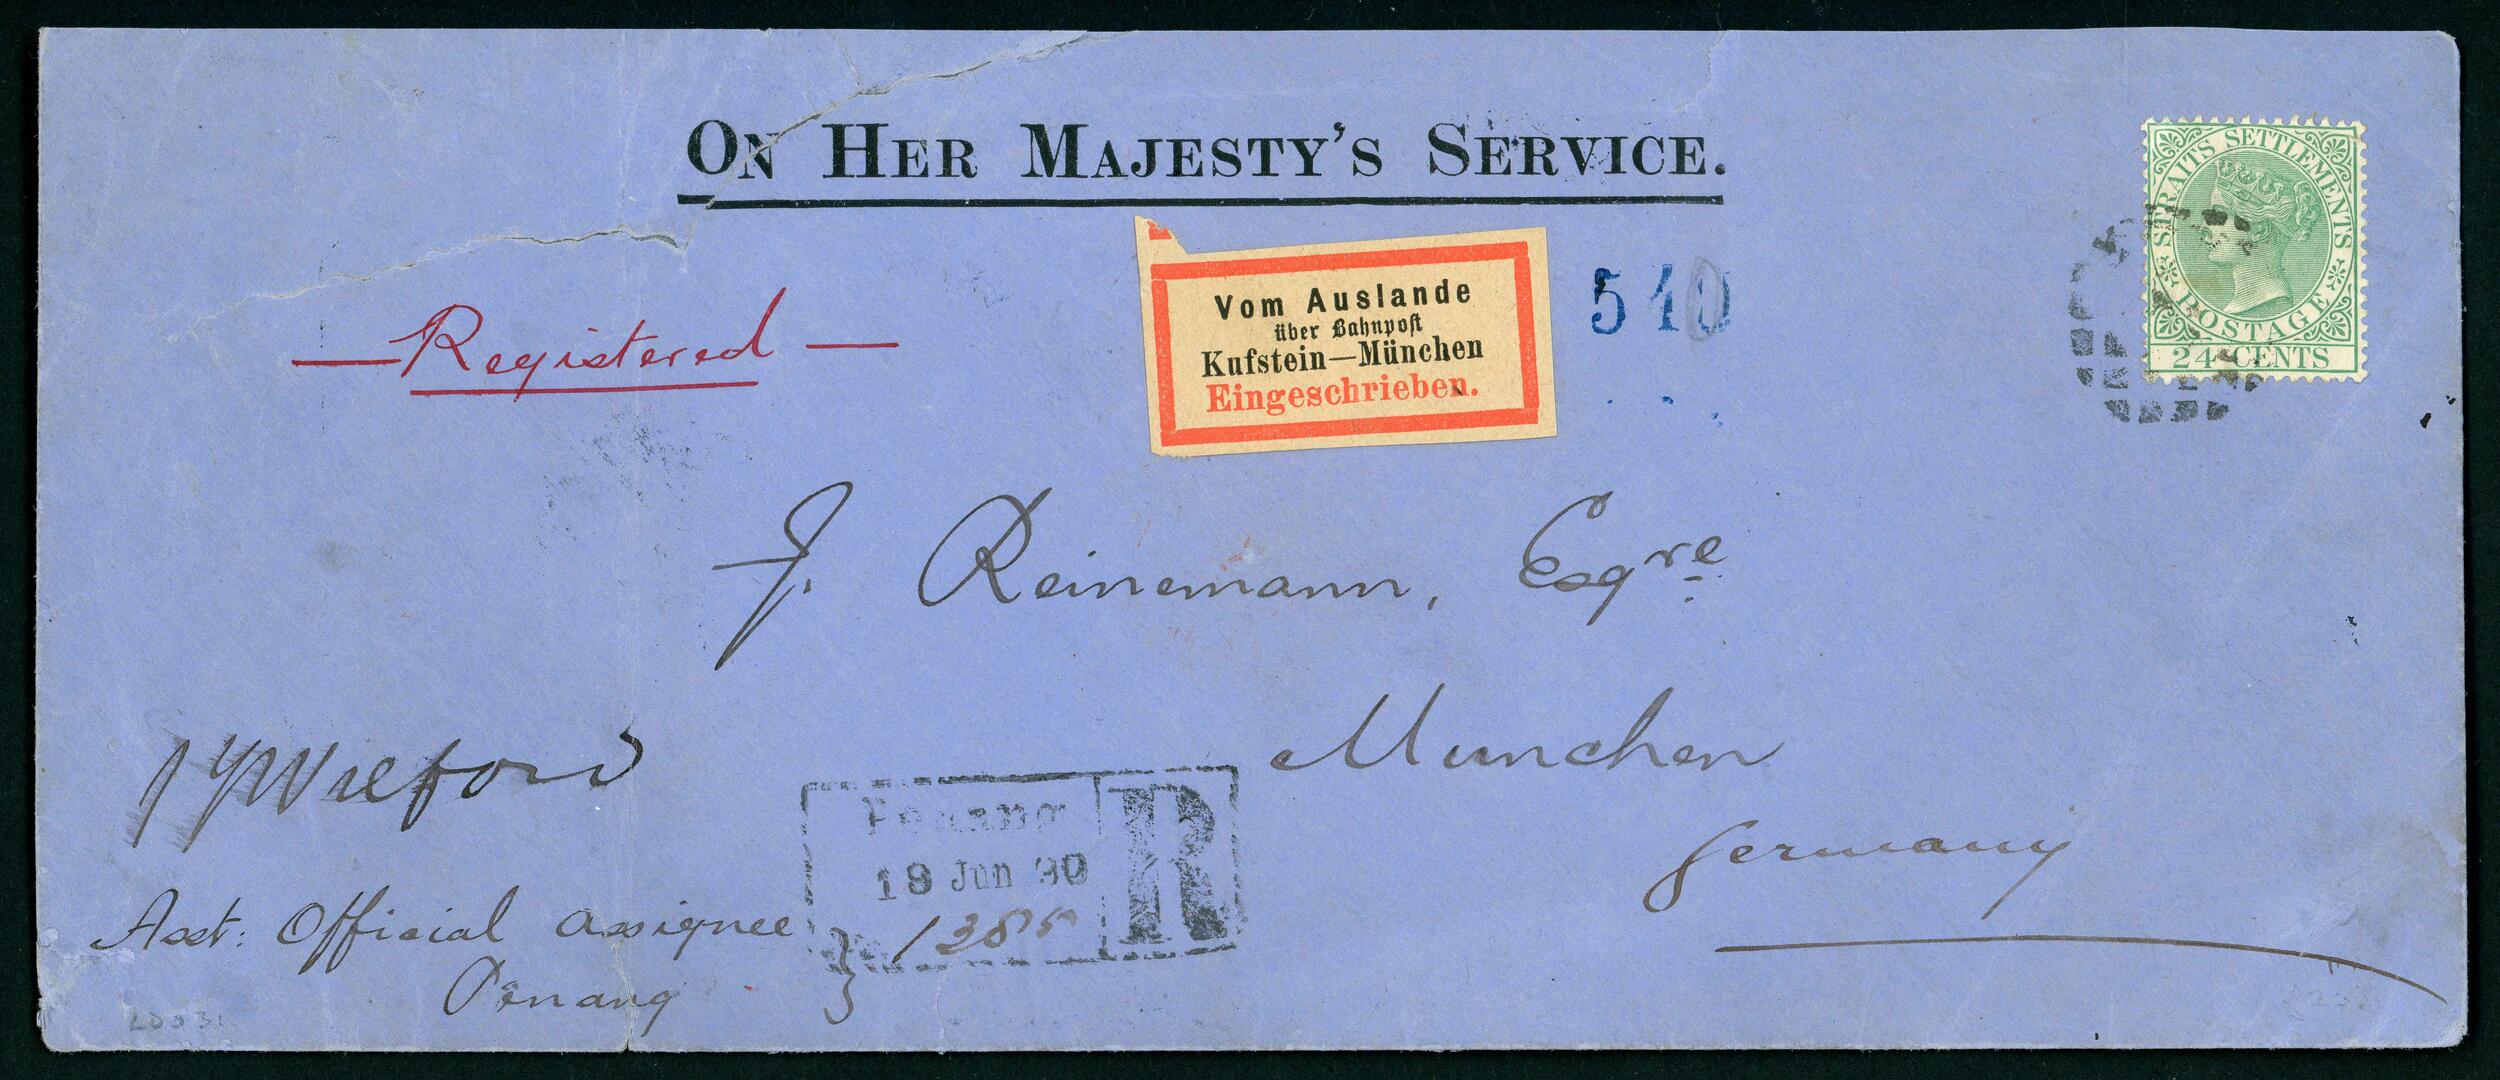 ON HER MAJESTY'S SERVICE.
STRAITS SETTLEMENTS
POSTAGE
24 CENTS
Vom Auslande
über Bahnpost
Kufstein—München
Eingeschrieben.
540
— Registered —
J. Reinemann, Esqre
Munchen
Germany
Wilford
Asst: Official Assignee
Penang
Penang
18 Jun 90
R
1385